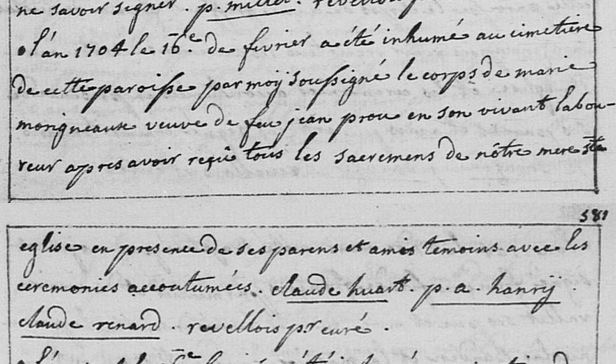 ne savoir signer. p. millet. revellois
l'an 1704 le 16.e de fevrier a été inhumé au cimetiere
de cette paroisse par moÿ soussigné le corps de marie
morigneaux veuve de feu jean prou en son vivant labou-
reur apres avoir reçu tous les sacremens de nôtre mere ste
581
eglise en presence de ses parens et amis temoins avec les
ceremonies accoutumées. claude huart. p. a. hanrÿ
claude renard. revellois p.r curé.